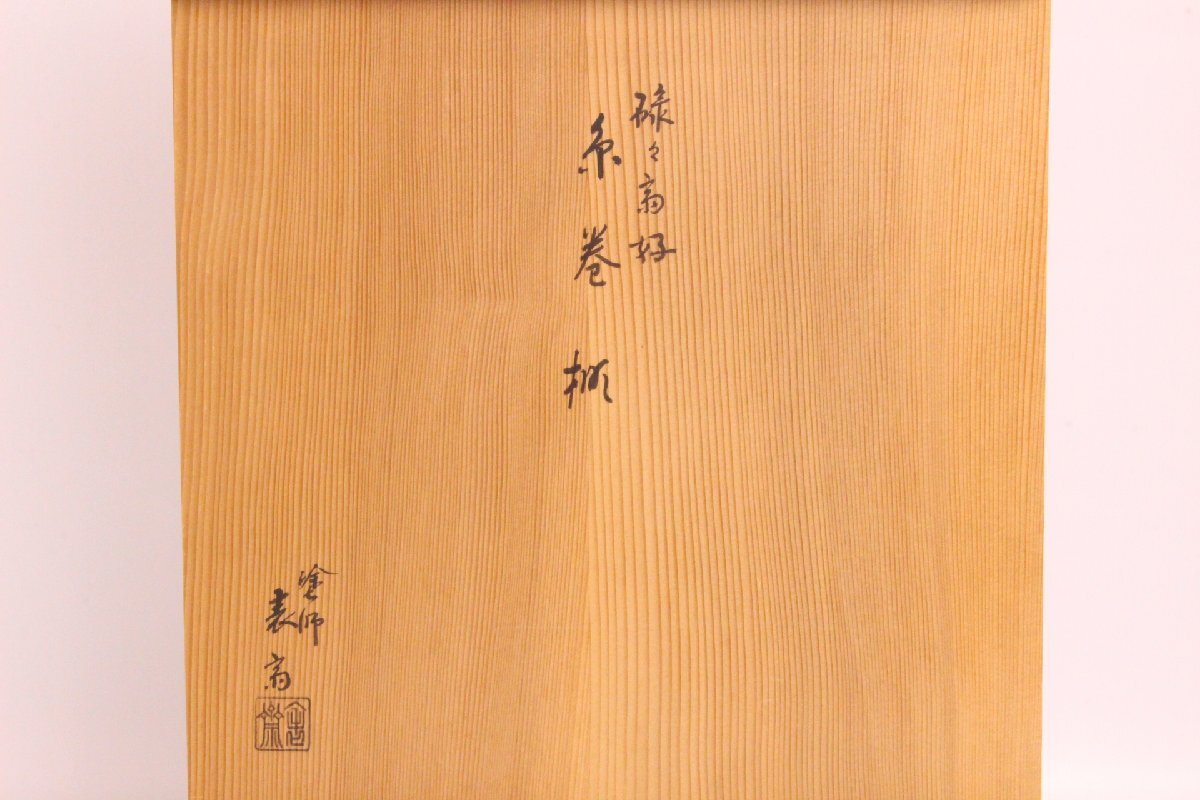 碌々斎好
糸巻棚
塗師
表斎